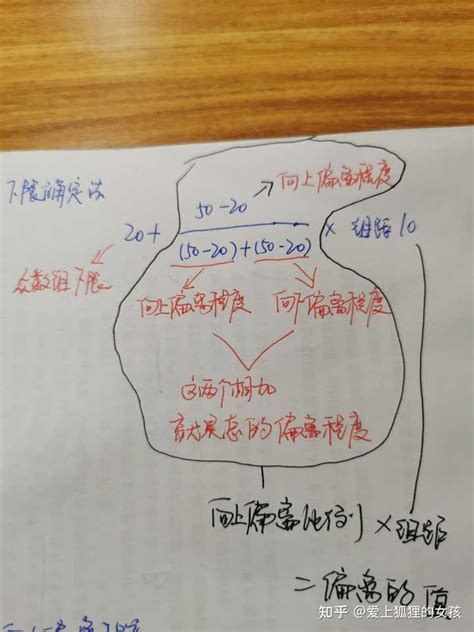 下限确定法
50-20 → 向上偏离程度
20+ × 组距10
(50-20)+(50-20)
众数组下限
向上偏离程度 向下偏离程度
这两个相加
就是总的偏离程度
向上偏离比例 × 组距
=偏离的值
知乎 @爱上狐狸的女孩